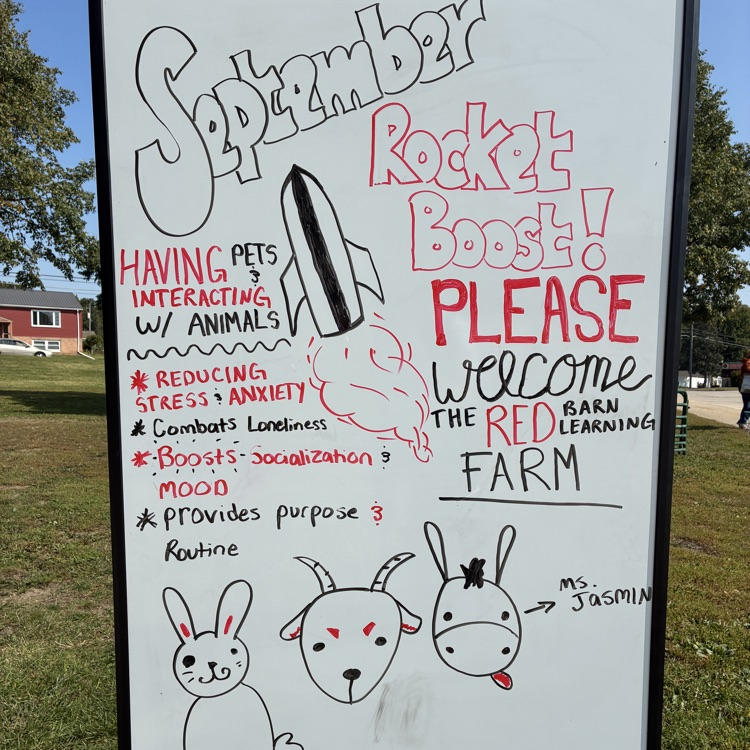 September
Rocket
Boost!
HAVING PETS &
INTERACTING
W/ ANIMALS
* REDUCING
STRESS & ANXIETY
* Combats Loneliness
* Boosts Socialization &
MOOD
* provides purpose &
Routine
PLEASE
welcome
THE RED BARN LEARNING
FARM
ms.
JASMIN